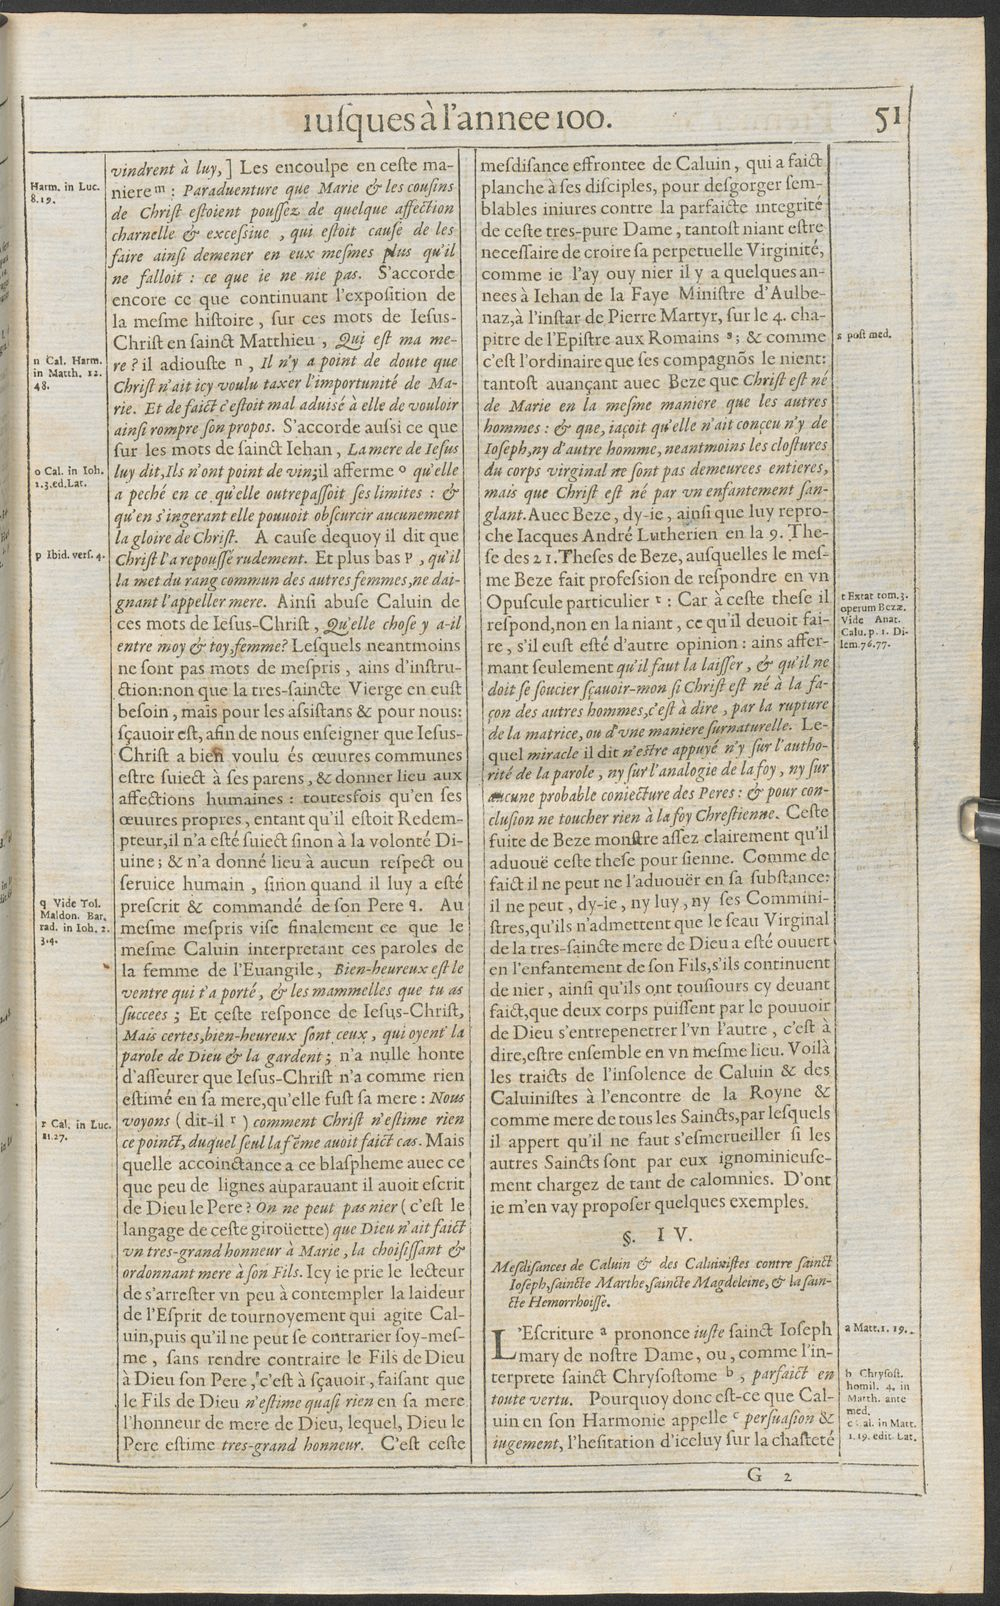 iusques à l'annee 100.
51
vindrent à luy, ] Les encoulpe en ceste ma-
niere m : Paraduenture que Marie & les cousins
de Christ estoient poussez de quelque affection
charnelle & excessiue , qui estoit cause de les
faire ainsi demener en eux mesmes plus qu'il
ne falloit : ce que ie ne nie pas. S'accorde
encore ce que continuant l'exposition de
la mesme histoire , sur ces mots de Iesus-
Christ en sainct Matthieu , Qui est ma me-
re ? il adiouste n , Il n'y a point de doute que
Christ n'ait icy voulu taxer l'importunité de Ma-
rie. Et de faict c'estoit mal aduisé à elle de vouloir
ainsi rompre son propos. S'accorde aussi ce que
sur les mots de sainct Iehan , La mere de Iesus
luy dit, Ils n'ont point de vin; il afferme o qu'elle
a peché en ce qu'elle outrepassoit ses limites : &
qu'en s'ingerant elle pouuoit obscurcir aucunement
la gloire de Christ. A cause dequoy il dit que
Christ l'a repoussé rudement. Et plus bas p , qu'il
la met du rang commun des autres femmes, ne dai-
gnant l'appeller mere. Ainsi abuse Caluin de
ces mots de Iesus-Christ , Qu'elle chose y a-il
entre moy & toy, femme? Lesquels neantmoins
ne sont pas mots de mespris , ains d'instru-
ction: non que la tres-saincte Vierge en eust
besoin , mais pour les assistans & pour nous:
sçauoir est, afin de nous enseigner que Iesus-
Christ a bien voulu és œuures communes
estre suiect à ses parens, & donner lieu aux
affections humaines : toutesfois qu'en ses
œuures propres , entant qu'il estoit Redem-
pteur, il n'a esté suiect sinon à la volonté Di-
uine ; & n'a donné lieu à aucun respect ou
seruice humain , sinon quand il luy a esté
prescrit & commandé de son Pere q. Au
mesme mespris vise finalement ce que le
mesme Caluin interpretant ces paroles de
la femme de l'Euangile, Bien-heureux est le
ventre qui t'a porté , & les mammelles que tu as
succees ; Et ceste responce de Iesus-Christ,
Mais certes, bien-heureux sont ceux , qui oyent la
parole de Dieu & la gardent ; n'a nulle honte
d'asseurer que Iesus-Christ n'a comme rien
estimé en sa mere, qu'elle fust sa mere : Nous
voyons ( dit-il r ) comment Christ n'estime rien
ce poinct, duquel seul la fẽme auoit faict cas. Mais
quelle accoinctance a ce blaspheme auec ce
que peu de lignes auparauant il auoit escrit
de Dieu le Pere ? On ne peut pas nier ( c'est le
langage de ceste giroüette) que Dieu n'ait faict
vn tres-grand honneur à Marie , la choisissant &
ordonnant mere à son Fils. Icy ie prie le lecteur
de s'arrester vn peu à contempler la laideur
de l'Esprit de tournoyement qui agite Cal-
uin, puis qu'il ne peut se contrarier soy-mes-
me , sans rendre contraire le Fils de Dieu
à Dieu son Pere , c'est à sçauoir , faisant que
le Fils de Dieu n'estime quasi rien en sa mere
l'honneur de mere de Dieu, lequel, Dieu le
Pere estime tres-grand honneur. C'est ceste
Harm. in Luc.
8.19.
n Cal. Harm.
in Matth. 12.
48.
o Cal. in Ioh.
1.3.ed.Lat.
p Ibid. vers. 4.
q Vide Tol.
Maldon. Bar.
rad. in Ioh. 2.
3.4.
r Cal. in Luc.
11.27.
mesdisance effrontee de Caluin , qui a faict
planche à ses disciples, pour desgorger sem-
blables iniures contre la parfaicte integrité
de ceste tres-pure Dame , tantost niant estre
necessaire de croire sa perpetuelle Virginité,
comme ie l'ay ouy nier il y a quelques an-
nees à Iehan de la Faye Ministre d'Aulbe-
naz, à l'instar de Pierre Martyr, sur le 4. cha-
pitre de l'Epistre aux Romains s ; & comme
c'est l'ordinaire que ses compagnõs le nient:
tantost auançant auec Beze que Christ est né
de Marie en la mesme maniere que les autres
hommes : & que, iaçoit qu'elle n'ait conçeu n'y de
Ioseph, ny d'autre homme, neantmoins les clostures
du corps virginal ne sont pas demeurees entieres,
mais que Christ est né par vn enfantement san-
glant. Auec Beze , dy-ie , ainsi que luy repro-
che Iacques André Lutherien en la 9. The-
se des 21. Theses de Beze, ausquelles le mes-
me Beze fait profession de respondre en vn
Opuscule particulier t : Car à ceste these il
respond, non en la niant , ce qu'il deuoit fai-
re , s'il eust esté d'autre opinion : ains affer-
mant seulement qu'il faut la laisser , & qu'il ne
doit se soucier sçauoir-mon si Christ est né à la fa-
çon des autres hommes, c'est à dire , par la rupture
de la matrice, ou d'vne maniere surnaturelle. Le-
quel miracle il dit n'estre appuyé n'y sur l'autho-
rité de la parole , ny sur l'analogie de la foy , ny sur
aucune probable coniecture des Peres : & pour con-
clusion ne toucher rien à la foy Chrestienne. Ceste
fuite de Beze monstre assez clairement qu'il
aduouë ceste these pour sienne. Comme de
faict il ne peut ne l'aduouër en sa substance:
il ne peut , dy-ie , ny luy , ny ses Commini-
stres, qu'ils n'admettent que le seau Virginal
de la tres-saincte mere de Dieu a esté ouuert
en l'enfantement de son Fils, s'ils continuent
de nier , ainsi qu'ils ont tousiours cy deuant
faict, que deux corps puissent par le pouuoir
de Dieu s'entrepenetrer l'vn l'autre , c'est à
dire, estre ensemble en vn mesme lieu. Voilà
les traicts de l'insolence de Caluin & des
Caluinistes à l'encontre de la Royne &
comme mere de tous les Saincts, par lesquels
il appert qu'il ne faut s'esmerueiller si les
autres Saincts sont par eux ignominieuse-
ment chargez de tant de calomnies. D'ont
ie m'en vay proposer quelques exemples.
§. IV.
Mesdisances de Caluin & des Caluinistes contre sainct
Ioseph, saincte Marthe, saincte Magdeleine, & la sain-
cte Hemorrhoisse.
L'Escriture a prononce iuste sainct Ioseph
mary de nostre Dame , ou , comme l'in-
terprete sainct Chrysostome b , parfaict en
toute vertu. Pourquoy donc est-ce que Cal-
uin en son Harmonie appelle c persuasion &
iugement, l'hesitation d'iceluy sur la chasteté
s post med.
t Extat tom.3.
operum Bezæ.
Vide Anat.
Calu. p. 1. Di-
lem.76.77.
a Matt.1. 19.
b Chrysost.
homil. 4. in
Matth. ante
med.
c Cal. in Matt.
1.19. edit. Lat.
G 2